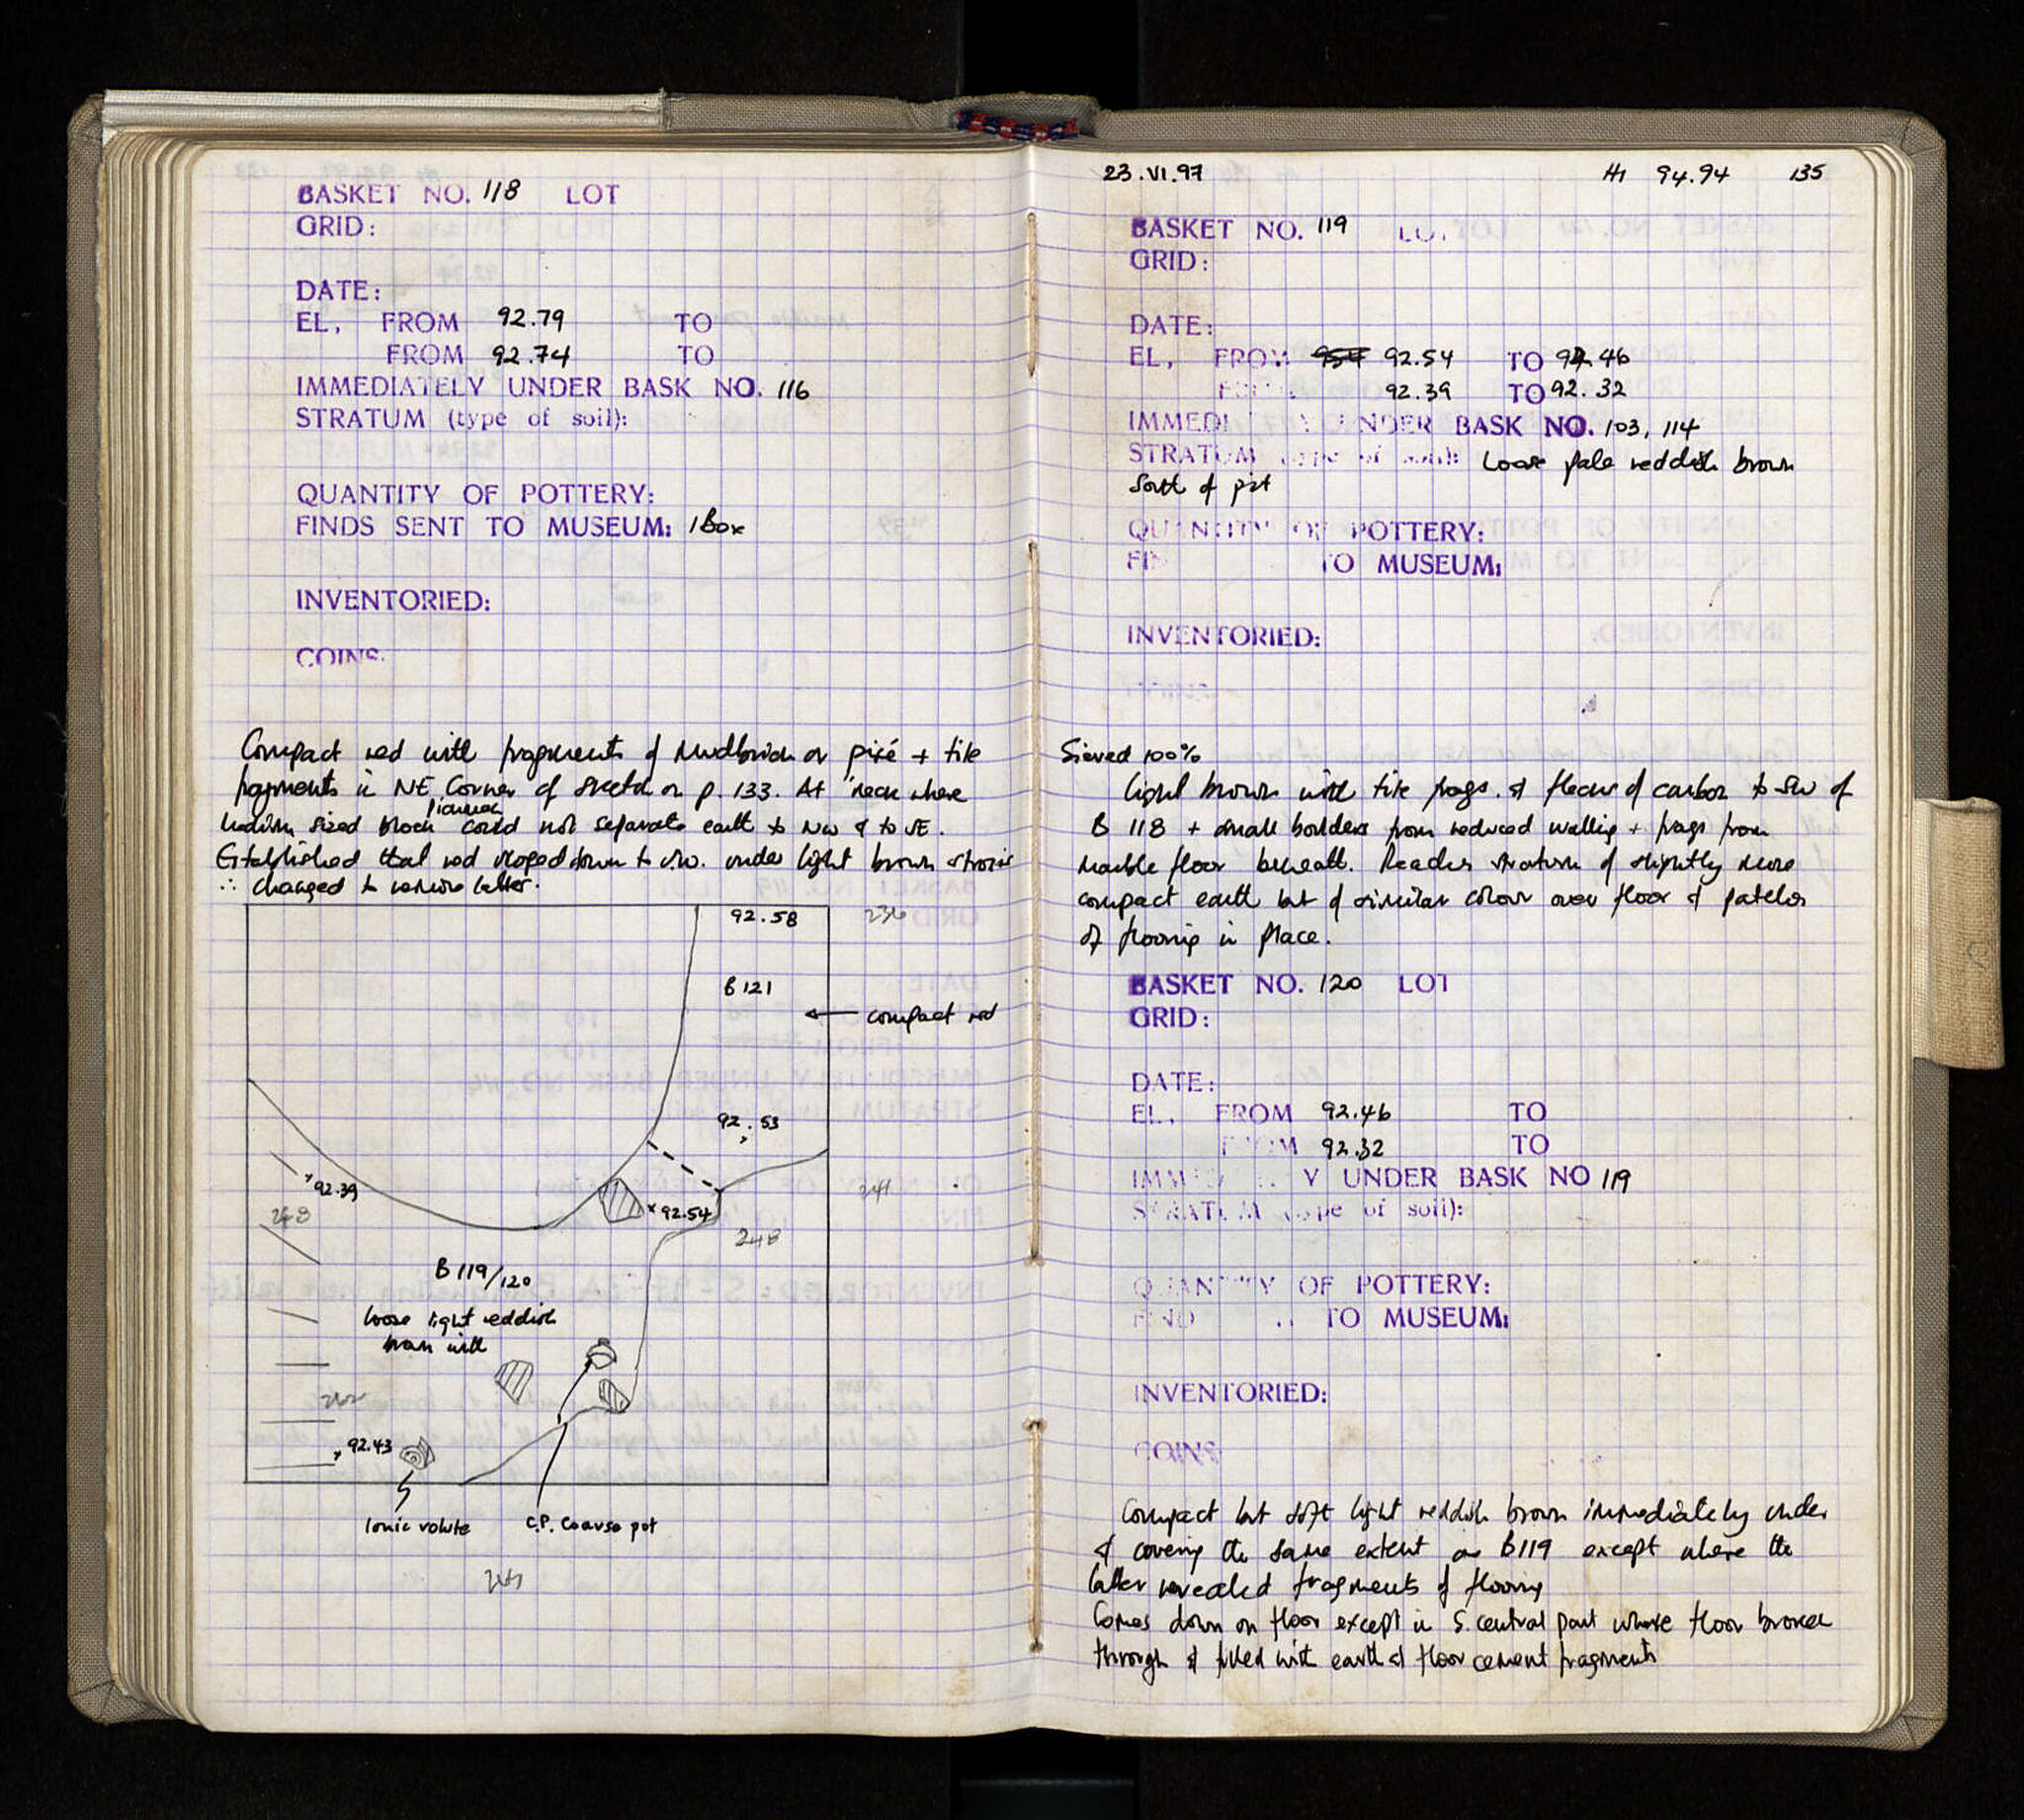 BASKET NO. 118 LOT
GRID:
DATE:
EL, FROM 92.79 TO
FROM 92.74 TO
IMMEDIATELY UNDER BASK NO. 116
STRATUM (type of soil):
QUANTITY OF POTTERY:
FINDS SENT TO MUSEUM: 1 Box
INVENTORIED:
COINS.
Compact red with fragments of mudbrick or pisé + tile
fragments in NE Corner of sketch on p. 133. At neck where
medium sized block could not separate earth to NW & to SE.
Established that red sloped down to SW. under light brown
∴ changed to remove latter.
92.58
236
B 121
compact red
92.53
92.39
248
92.54
241
248
B 119/120
loose light reddish
brown with
242
92.43
Ionic volute
C.P. Coarse pot
23.VI.97
94.94 135
BASKET NO. 119 LOT
GRID:
DATE:
EL, FROM 954 92.54 TO 92.46
92.39 TO 92.32
UNDER BASK NO. 103, 114
STRATUM of soil: Loose pale reddish brown
South of pit
QUANTITY OF POTTERY:
TO MUSEUM:
INVENTORIED:
Sieved 100%
Light brown with tile frags. & flecks of carbon to SW of
B 118 + small boulders from reduced walling + frags from
marble floor beneath. Reaches stratum of slightly more
compact earth but of similar colour over floor & patches
of flooring in place.
BASKET NO. 120 LOT
GRID:
DATE:
EL, FROM 92.46 TO
92.32 TO
UNDER BASK NO 119
STRATUM (type of soil):
QUANTITY OF POTTERY:
TO MUSEUM:
INVENTORIED:
COINS
Compact but soft light reddish brown immediately under
& covering the same extent as B119 except where the
latter revealed fragments of flooring
Comes down on floor except in S. central part where floor broken
through & filled with earth & floor cement fragments